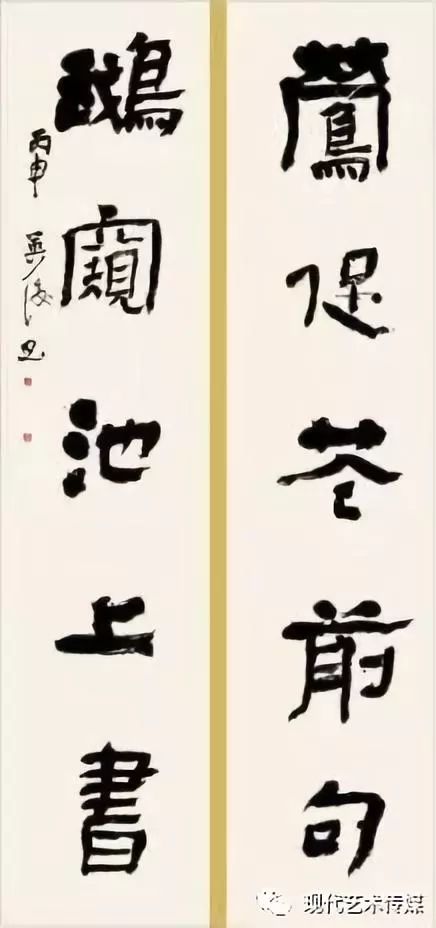 鶯促花前句
鵝窺池上書
丙申
现代艺术传媒